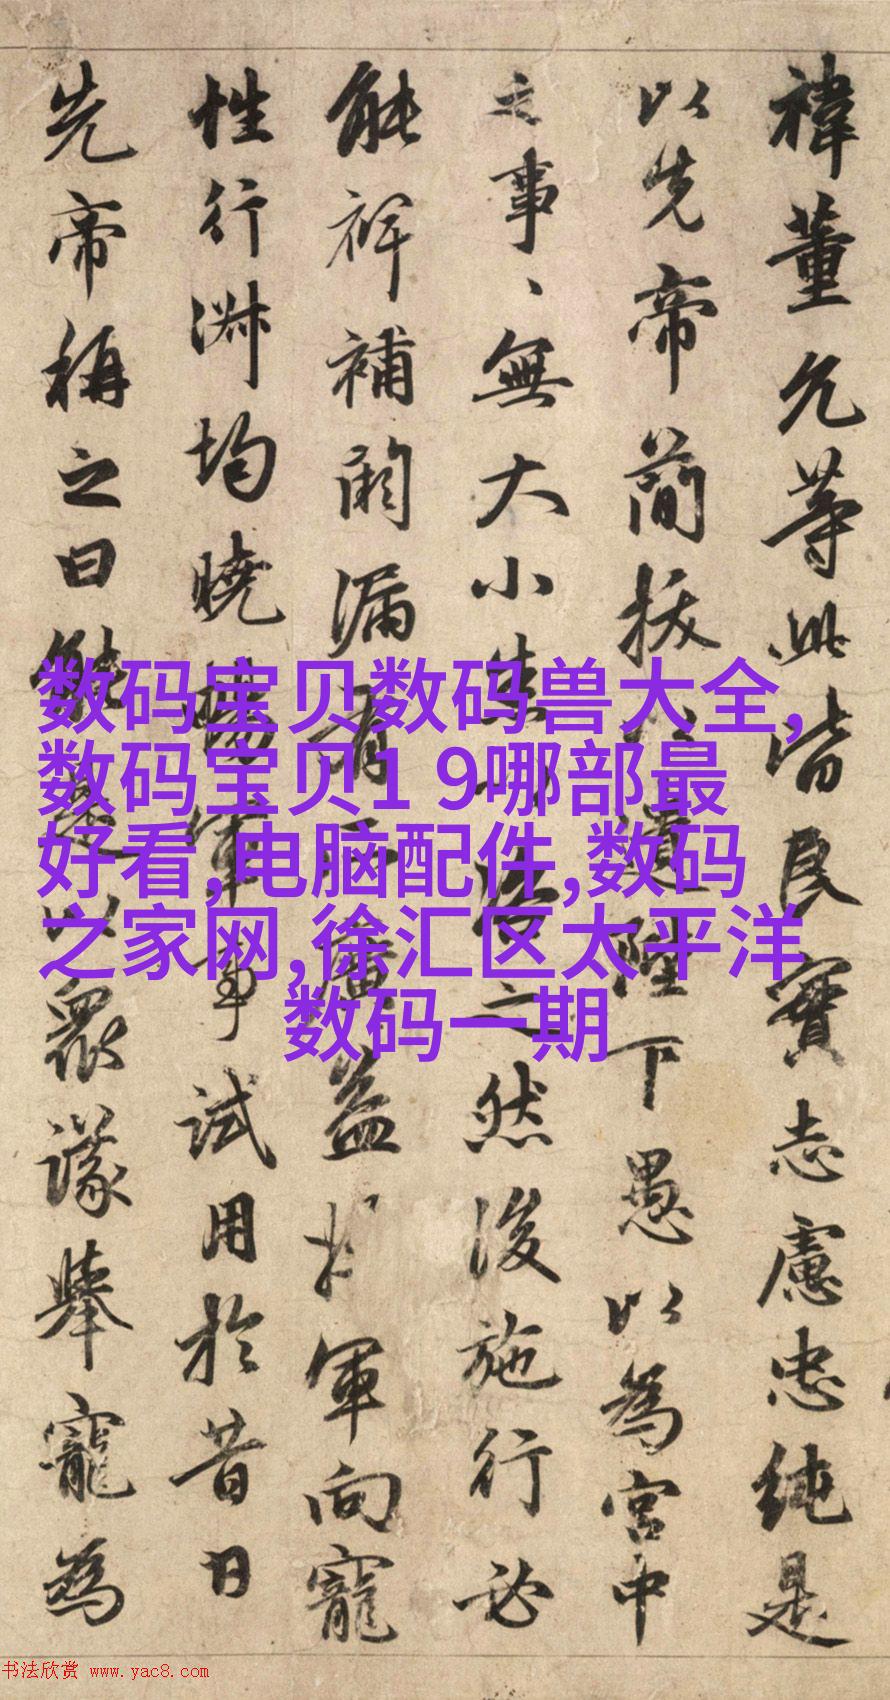 禕董允等此皆良實志慮忠純是
以先帝簡拔以遺陛下愚以為宮中
之事、無大小悉以咨之然後施行必
能裨補闕漏有所廣益將軍向寵
性行淑均曉暢軍事試用於昔日
先帝稱之曰能是以眾議舉寵為
数码宝贝数码兽大全,
数码宝贝1 9哪部最
好看,电脑配件,数码
之家网,徐汇区太平洋
数码一期
书法欣赏 www.yac8.com